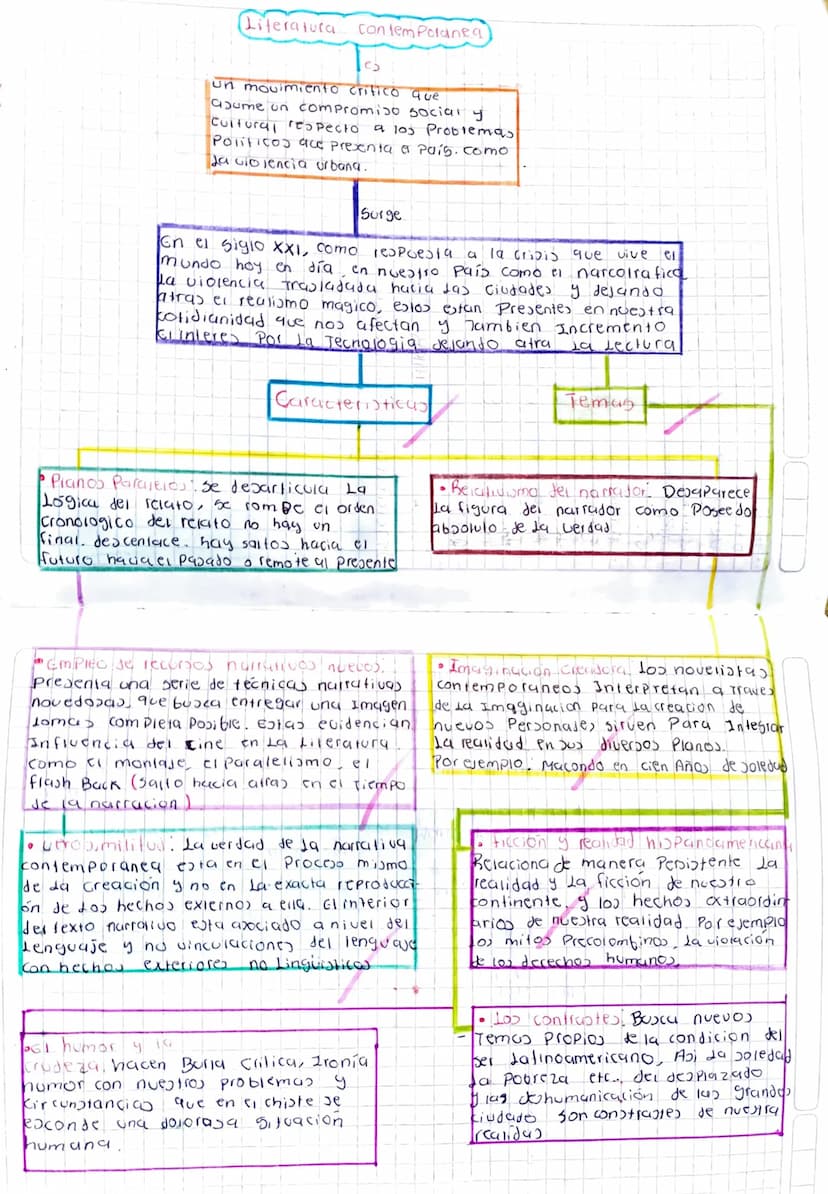 Literatura contemporanea
es
un movimiento critico que
asume un compromiso social y
cultural respecto a los Problemas
Politicos que presenta el País. como
la violencia urbana.
Surge
En el siglo XXI, como respuesta a la crisis que vive el
mundo hoy en día, en nuestro País como el narcotrafico
la violencia trasladada hacia las ciudades y dejando
atras el realismo magico, estos estan Presentes en nuestra
cotidianidad que nos afectan y Tambien Incremento
el interes Por la Tecnologia dejando atra la Lectura
Caracteristicas
Temas
• Planos Paralelos: se desarticula La
Lógica del relato, se rompe el orden
cronologico del relato no hay un
final. descenlace. hay saltos hacia el
futuro hacia el Pasado o remote al Presente
• Relativismo del narrador. Desaparece
La figura del narrador como Poseedo
absoluto de la verdad
• Empleo de recursos narrativos nuevos.
Presenta una serie de técnicas narrativas
novedosas, que busca entregar una Imagen
lomas completa Posible. Estas evidencian
Influencia del Cine en La Literatura.
como el montaje, el Paralelismo, el
flash Back (Salto hacia atras en el Tiempo
de la narracion)
• Imaginación Creadora. Los novelistas
contemporaneos Interpretan a Traves
de la Imaginacion Para la creacion de
nuevos Personajes sirven Para Integrar
La realidad en sus diversos Planos.
Por ejemplo: Macondo en cien Años de soledad
• Verosimilitud: La verdad de la narrativa
contemporanea esta en el Proceso mismo
de la creación y no en La exacta reproducci-
ón de Los hechos externos a ella. El interior
del texto narrativo esta asociado a nivel del
Lenguaje y no vinculaciones del lenguaje
con hechos exteriores no Lingüisticos
• ficción y realidad hispanoamericana
Relaciona de manera Persistente la
realidad y La ficción de nuestro
continente, y los hechos extraordin
arios de nuestra realidad. Por ejemplo
los mitos Precolombinos, la violación
de los derechos humanos.
• El humor y la
crudeza. hacen Burla critica, Ironía
humor con nuestros problemas y
circunstancias que en el chiste se
esconde una dolorosa situación
humana.
• Los contrastes. Busca nuevos
Temas Propios de la condición del
ser latinoamericano, Asi la soledad
la Pobreza etc., del desplazado
y las deshumanicación de las grandes
ciudades son constrastes de nuestra
realidas